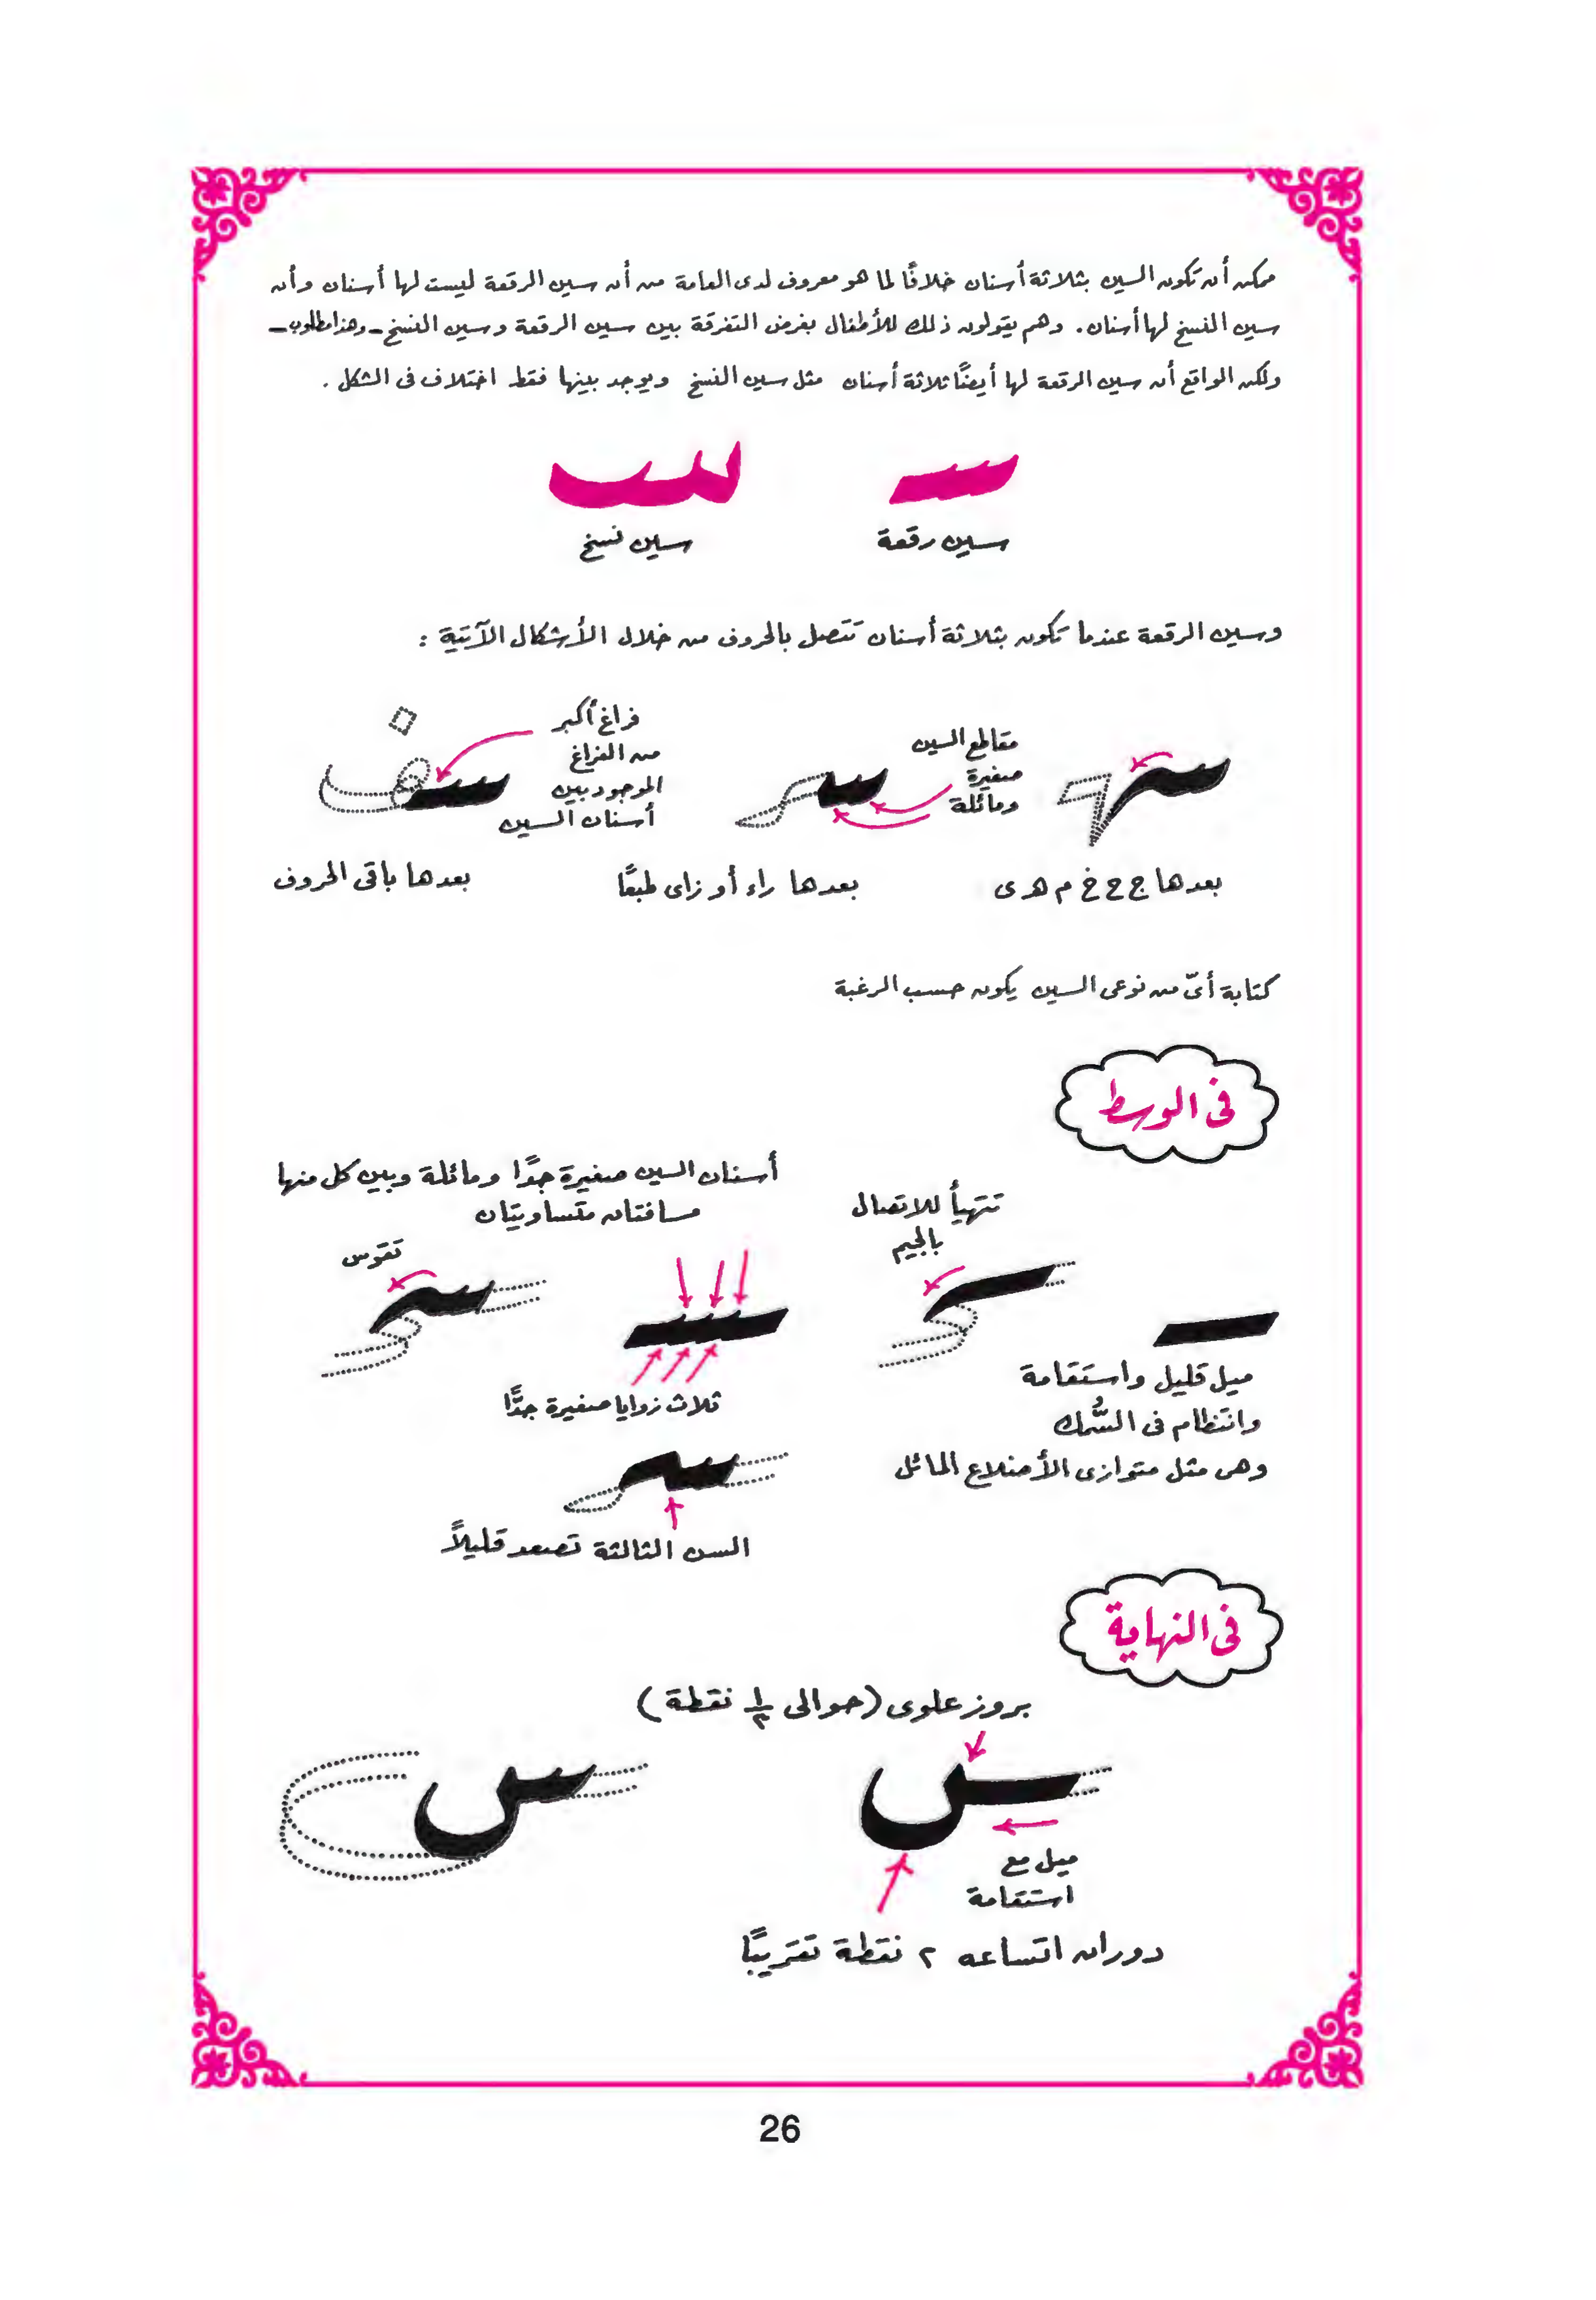 ممكن أن تكون السين بثلاثة أسنان خلافًا لما هو معروف لدى العامة من أن سين الرقعة ليست لها أسنان وأن
سين النسخ لها أسنان. وهم يقولون ذلك للأطفال بغرض التفرقة بين سين الرقعة وسين النسخ ـ وهذا مطلوب ـ
ولكن الواقع أن سين الرقعة لها أيضًا ثلاثة أسنان مثل سين النسخ ويوجد بينها فقط اختلاف فى الشكل .
سين رقعة
سين نسخ
وسين الرقعة عندما تكون بثلاثة أسنان تتصل بالحروف من خلال الأشكال الآتية :
مقاطع السين
صغيرة
ومائلة
فراغ أكبر
من الفراغ
الموجود بين
أسنان السين
بعدها ج ح خ م ه ى
بعدها راء أو زاى طبعًا
بعدها باقى الحروف
كتابة أىّ من نوعى السين يكون حسب الرغبة
فى الوسط
تتهيأ للاتصال
بالجيم
أسنان السين صغيرة جدًا ومائلة وبين كل منها
مسافتان متساويتان
تقوس
ميل قليل واستقامة
وانتظام فى السُّمك
وهى مثل متوازى الأضلاع المائل
ثلاث زوايا صغيرة جدًّا
السن الثالثة تصعد قليلاً
فى النهاية
بروز علوى (حوالى ١/٢ نقطة)
س
س
ميل مع
استقامة
دوران اتساعه ٢ نقطة تقريبًا
26